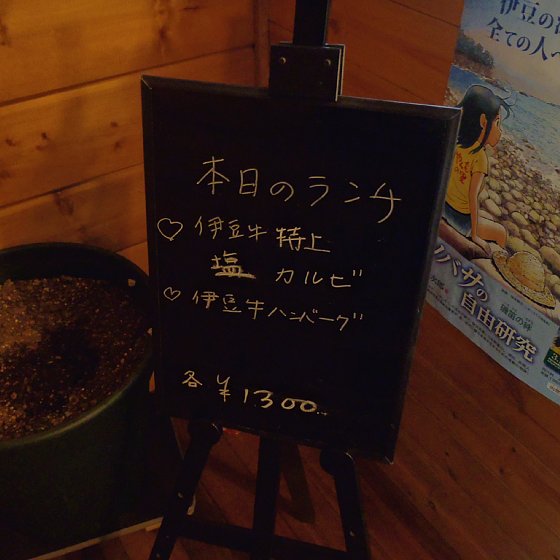 本日のランチ
♡伊豆牛特上
塩 カルビ
♡伊豆牛ハンバーグ
各¥1300
伊豆の
全ての人へ
バサの
自由研究